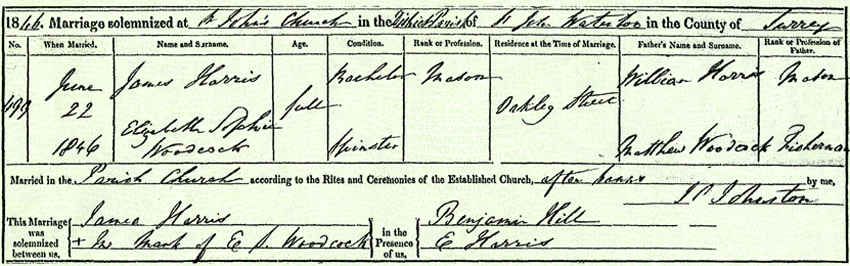 1846. Marriage solemnized at St John's Church in the Parish of St John Waterloo in the County of Surrey
No. When Married. Name and Surname. Age. Condition. Rank or Profession. Residence at the Time of Marriage. Father's Name and Surname. Rank or Profession of Father.
499 June 22 1846 James Harris full Bachelor Mason Oakley Street William Harris Mason
Elizabeth Sophia Woodcock Spinster Matthew Woodcock Fisherman
Married in the Parish Church according to the Rites and Ceremonies of the Established Church, after banns by me,
Johnston
This Marriage was solemnized between us, James Harris in the Presence of us, Benjamin Hill
+ The Mark of E S Woodcock E Harris